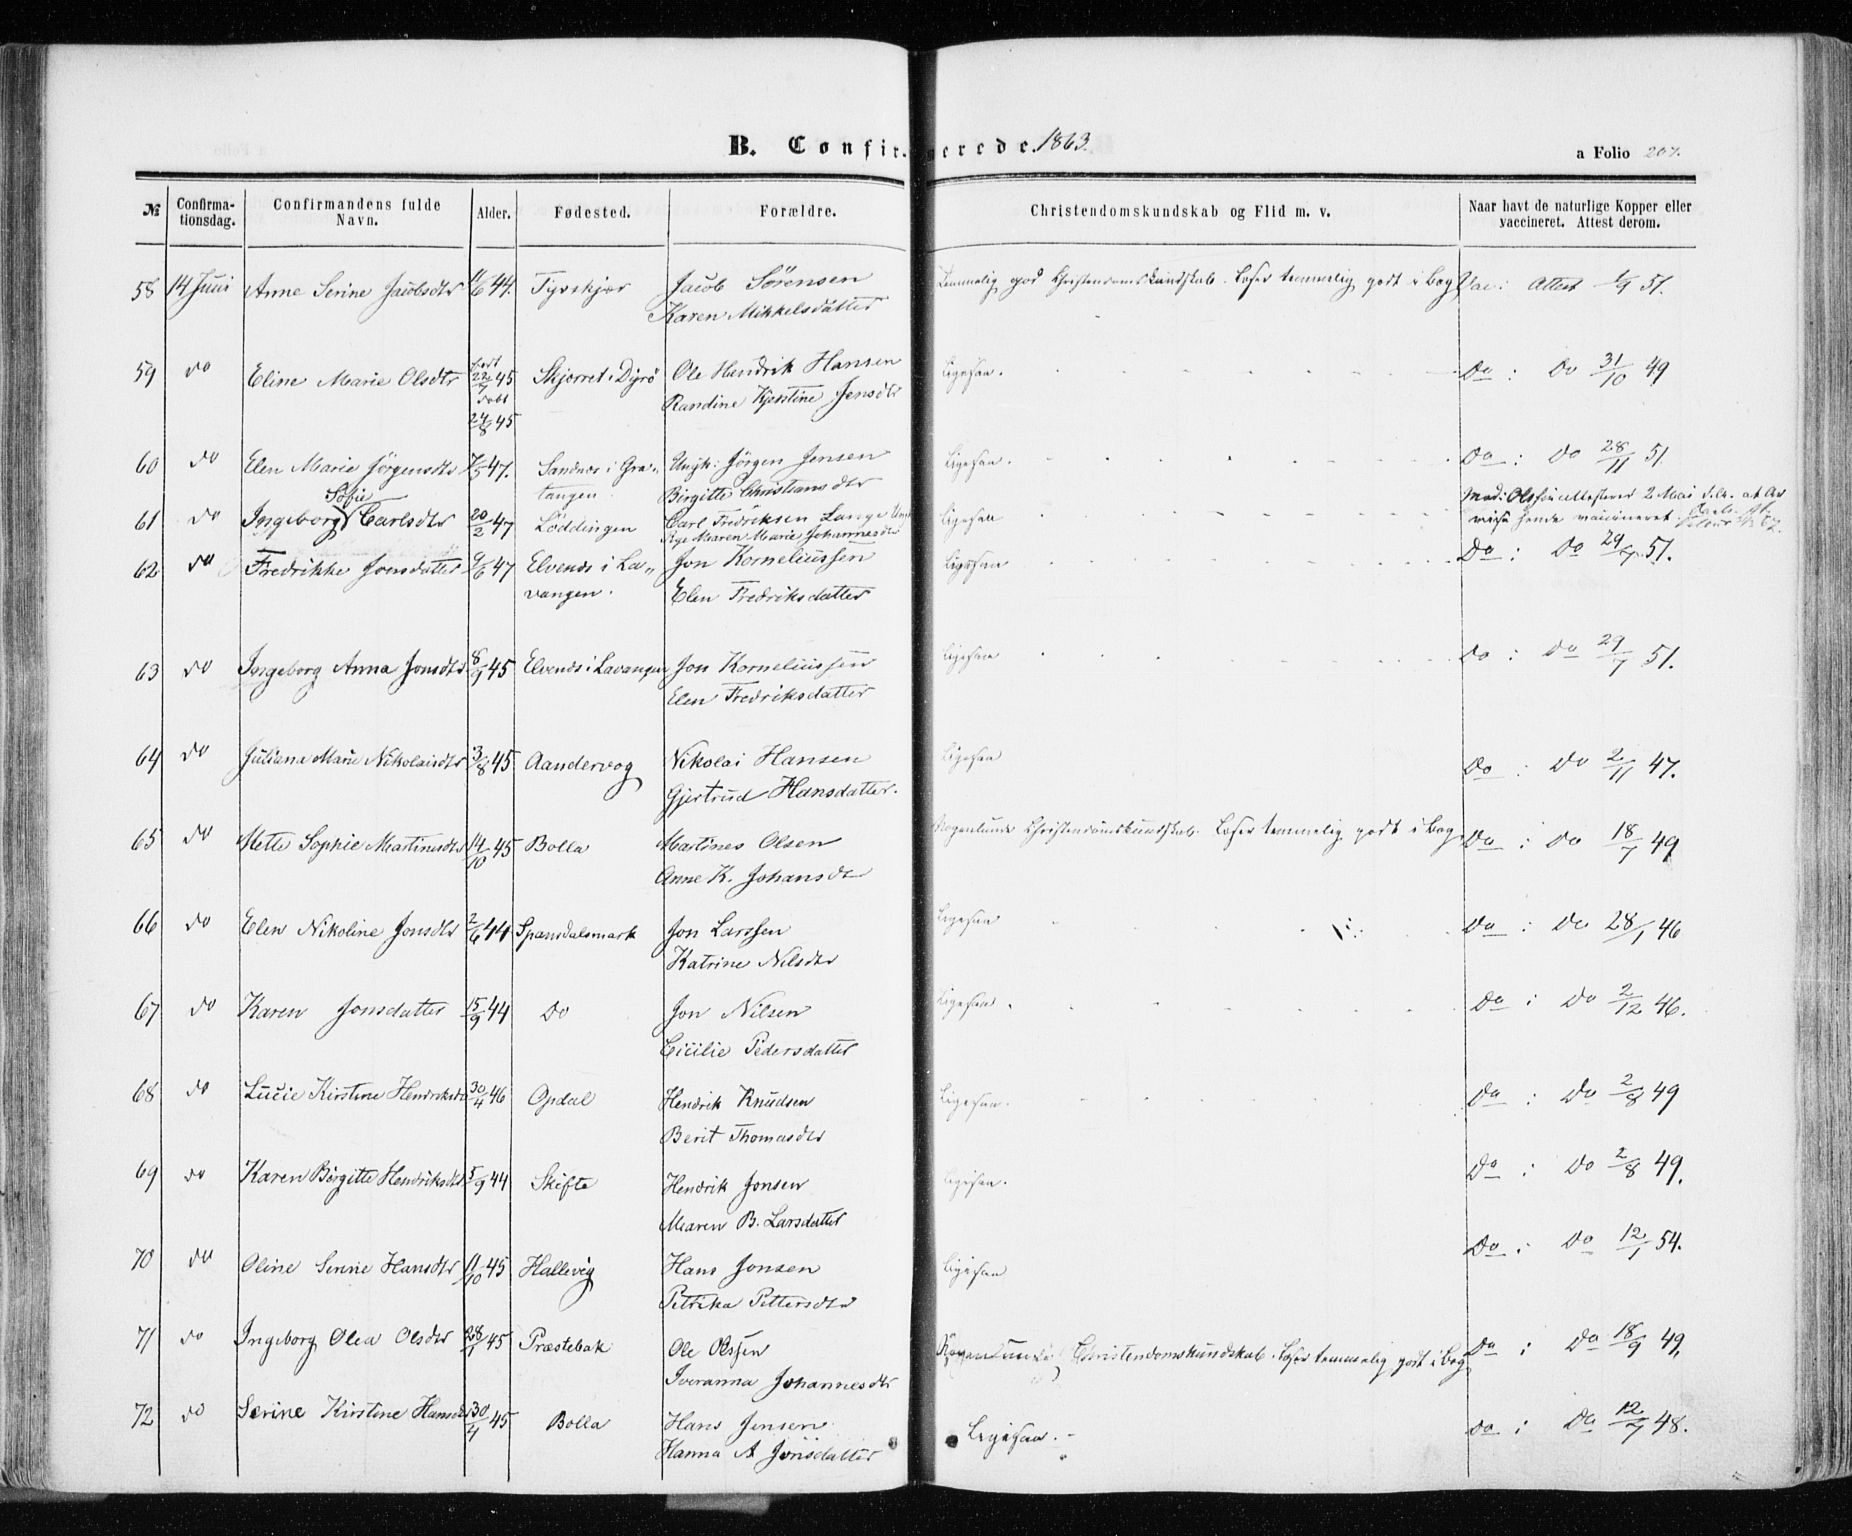 B. Confir-merede. 1863.
a Folio 207.
№
Confirma-tionsdag.
Confirmandens fulde Navn.
Alder.
Fødested.
Forældre.
Christendomskundskab og Flid m. v.
Naar havt de naturlige Kopper eller vaccineret. Attest derom.
58 14 Juni Anne Serine Jacobsdtr 44. Tyvskjær Jacob Sörensen Temmelig god Christendomskundskab. Læser temmelig godt i Bog Vac: Attest 51.
Karen Mikkelsdatter
59 do Eline Marie Olsdtr født 22/7 45 Skjorret i Dyrö Ole Hendrik Hansen Ligesaa. Do : Do 31/10 49
døbt 24/8 45 Randine Kjestine Jensdtr
60 do Elen Marie Jörgensdtr 7/5 47. Sandnes i Gra- Ungk: Jörgen Jensen Ligesaa. Do : Do 28/11 51.
tangen. Birgitte Christiansdtr
61 do Ingeborg Sofie Carlsdtr 20/2 47 Löddingen Carl Fredriksen Lange Ligesaa
Pige Maren Marie Johannesdtr
62 do Fredrikke Jonsdatter 9/6 47 Elvenes i La- Jon Korneliussen Ligesaa Do : Do 29/7 51.
vangen. Elen Fredriksdatter
63 do Ingeborg Anna Jonsdtr 8/9 45 Elvenes i Lavangen Jon Korneliussen Ligesaa Do : Do 29/7 51.
Elen Fredriksdatter
64 do Juliana Marie Nikolaisdtr 3/8 45 Aandervog Nikolai Hansen Ligesaa Do : Do 2/11 47.
Gjertrud Hansdatter.
65 do Mette Sophie Martinusdtr 14/10 45 Bolla Martines Olsen Nogenlunde Christendomskundskab. Læser temmelig godt i Bog Do : Do 18/7 49
Anne K. Johansdtr
66 do Elen Nikoline Jonsdtr 2/6 44 Spansdalsmark Jon Larssen Ligesaa Do : Do 28/1 46
Katrine Nilsdtr
67 do Karen Jonsdatter 15/9 44 Do Jon Nilsen Ligesaa. Do : Do 2/12 46.
Cicilie Pedersdatter
68 do Lucie Kirstine Hendriksdtr 30/4 46 Opdal Hendrik Knudsen Ligesaa. Do : Do 2/8 49
Berit Thomasdtr
69 do Karen Birgitte Hendriksdtr 5/9 44 Skifte Hendrik Jonsen Ligesaa. Do : Do 2/8 49.
Maren B. Larsdatter
70 do Oline Serine Hansdtr 11/10 45 Hallevig Hans Jonsen Ligesaa Do : Do 12/1 54.
Petrika Pettersdtr
71 do Ingeborg Olea Olsdtr 28/1 45 Præstebak Ole Olssen Nogenlunde Christendomskundskab. Læser temmelig godt i Bog Do : Do 18/9 49.
Iveranna Johannesdtr
72 do Serine Kirstine Hansdtr 30/4 45 Bolla Hans Jensen Ligesaa. Do : Do 12/7 48.
Hanna A Jonsdatter